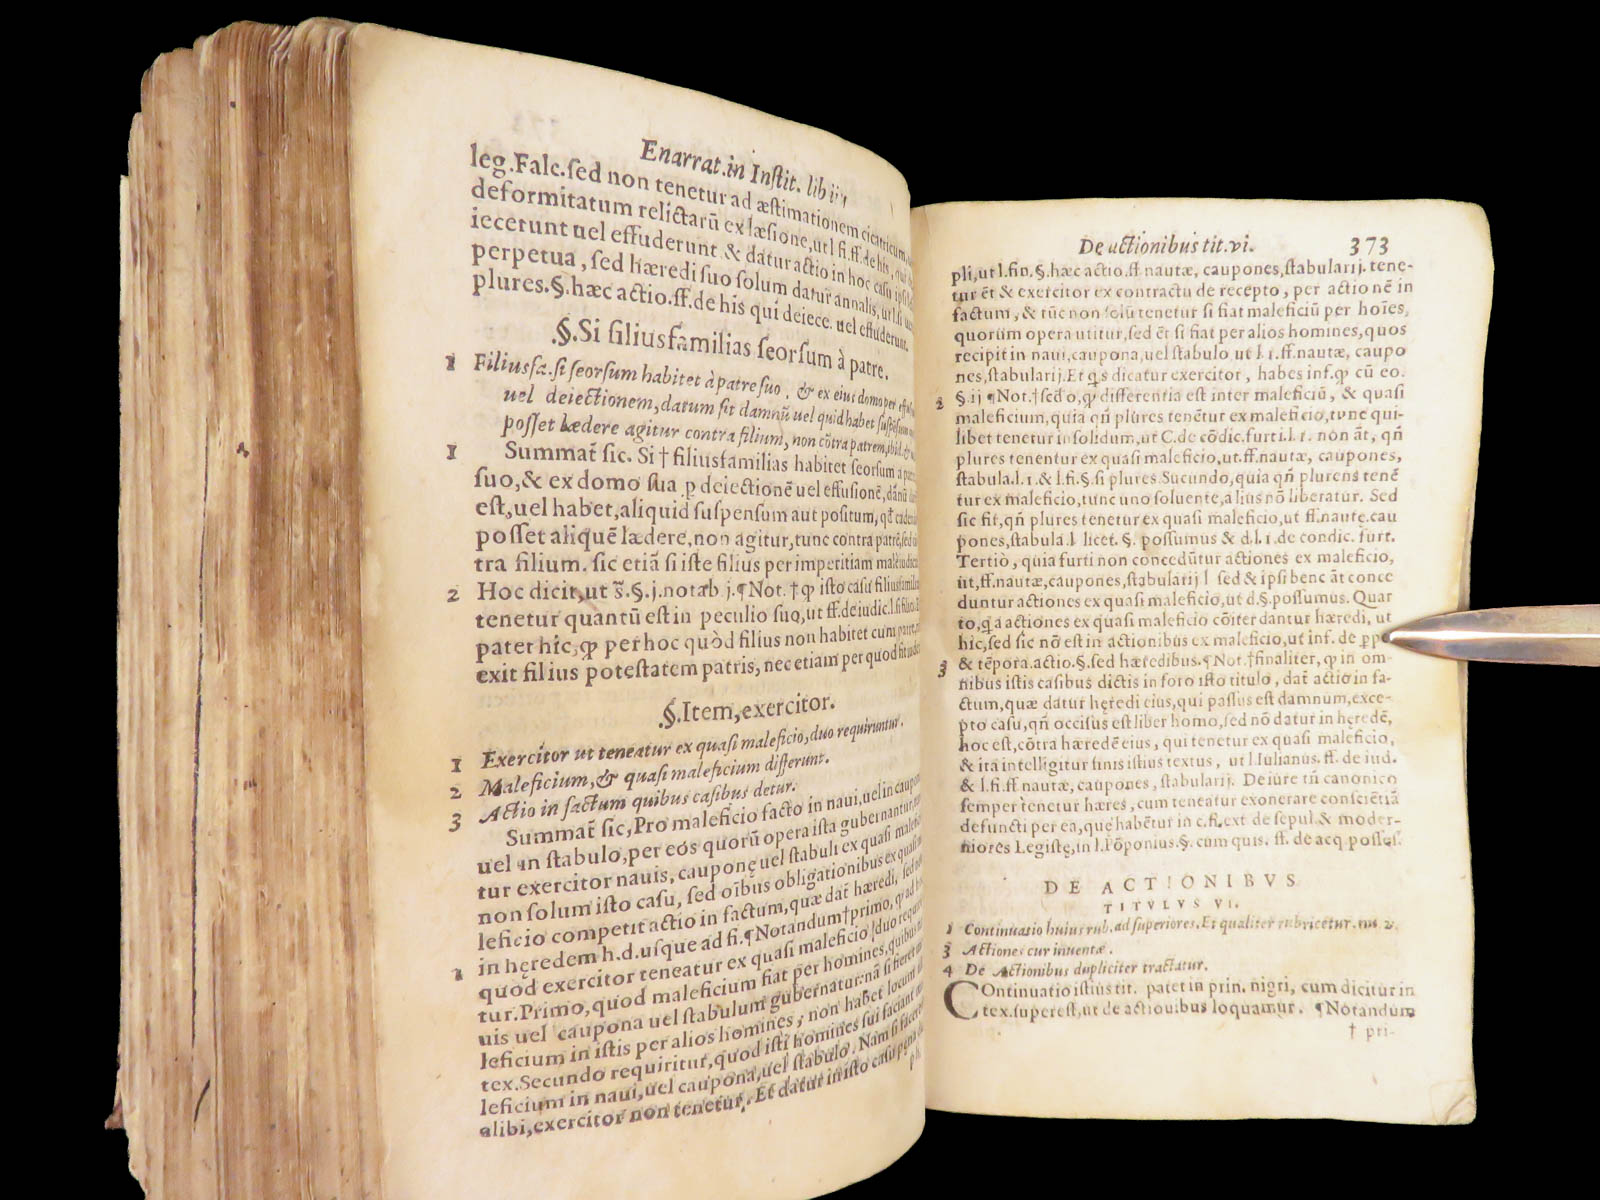 Enarrat.in Instit. lib iii
leg.Falc.sed non tenetur ad æstimationem cicatricum,
deformitatum relictarū ex læsione,ut l.fi.ff.de his, qui
iecerunt uel effuderunt. & datur actio in hoc casu
perpetua, sed hæredi suo solum datur annalis, ut l.si
plures.§.hæc actio.ff.de his qui deiece. uel effuderunt.
§.Si filiusfamilias seorsum à patre.
1 Filiusfa.si seorsum habitet à patre suo, & ex eius domo per
uel deiectionem,datum sit damnū uel quid habet suspensum
posset lædere agitur contra filium, non cōtra patrem,
1 Summat̄ sic. Si † filiusfamilias habitet seorsum a
suo,& ex domo sua ꝑ deiectionē uel effusionē,dānū
est,uel habet,aliquid suspensum aut positum, qđ
posset aliquē lædere,non agitur,tunc contra patrē,sed
tra filium. sic etiā si iste filius per imperitiam
2 Hoc dicit,ut s̄.§.j.notab j.¶Not. † ꝙ isto casu
tenetur quantū est in peculio suo,ut ff.de iudic.l.si
pater hic, ꝙ per hoc quòd filius non habitet cum patre,
exit filius potestatem patris, nec etiam per quod
§.Item,exercitor.
1 Exercitor ut teneatur ex quasi maleficio,duo requiruntur.
2 Maleficium,& quasi maleficium differunt.
3 Actio in factum quibus casibus detur.
Summat̄ sic,Pro maleficio facto in naui,uel in
uel in stabulo,per eos quorū opera ista gubernantur,
tur exercitor nauis, cauponę uel stabuli ex quasi
non solum isto casu, sed oībus obligationibus ex quasi
leficio competit actio in factum,quæ dat̄ hæredi,
in hęredem h.d.usque ad fi.¶Notandum†primo,
1 quòd exercitor teneatur ex quasi maleficio duo
tur.Primo,quod maleficium fiat per homines,quibus
uis uel caupona uel stabulum gubernatur:nā si fieret
leficium in istis per alios homines, non habet locum
tex.Secundo requiritur,quod isti homines sui faciant
leficium in naui,uel caupona,uel stabulo. Nam si
alibi,exercitor non tenetur. Et datur in isto casu pœna
De actionibus tit.vi. 373
pli,ut l.fin.§.hæc actio.ff.nautæ, caupones,stabularij. tene-
tur ēt & exercitor ex contractu de recepto, per actionē in
factum, & tūc non solū tenetur si fiat maleficiū per hoīes,
quorūm opera utitur,sed ēt si fiat per alios homines,quos
recipit in naui,caupona,uel stabulo ut l.1.ff.nautæ, caupo
nes,stabularij.Et q̇s dicatur exercitor, habes inf.ꝙ cū eo.
2 §.ij ¶Not.†secd̄o,ꝙ differentia est inter maleficiū, & quasi
maleficium,quia qn̄ plures tenētur ex maleficio,tunc qui-
libet tenetur in solidum,ut C.de cōdic.furti.l.1. non āt, qn̄
plures tenentur ex quasi maleficio,ut.ff.nautæ, caupones,
stabula.l.1.& l.fi.§.si plures Sucundo,quia qn̄ plurens tenē
tur ex maleficio,tunc uno soluente,alius nō liberatur. Sed
sic fit,qn̄ plures tenetur ex quasi maleficio,ut ff.nautę.cau
pones,stabula.l licet. §. possumus & d.l.1.de condic. furt.
Tertiò, quia furti non concedūtur actiones ex maleficio,
ut,ff.nautæ,caupones,stabularij l sed & ipsi benc āt conce
duntur actiones ex quasi maleficio,ut d.§.possumus. Quar
to,q̄a actiones ex quasi maleficio cōiter dantur hæredi, ut
hic,sed sic nō est in actionibus ex maleficio,ut inf. de ꝑp
3 & tēpora.actio.§.sed hæredibus.¶Not.†finaliter, ꝙ in om-
nibus istis casibus dictis in foro isto titulo, dat̄ actio in fa-
ctum,quæ datur hęredi eius,qui passus est damnum,exce-
pto casu,qn̄ occisus est liber homo,sed nō datur in hęredē,
hoc est,cōtra hæredē eius, qui tenetur ex quasi maleficio,
& ita intelligitur finis istius textus, ut l.Iulianus. ff. de iud.
& l.fi.ff nautæ, caupones, stabularij. De iure tn̄ canonico
semper tenetur hæres, cum teneatur exonerare consciētiā
defuncti per ea,quę habētur in c.fi.ext de sepul.& moder-
niores Legistę,in l.Pōponius.§. cum quis. ff. de acq.posses.
DE ACTIONIBVS
TITVLVS VI.
1 Continuatio huius rub. ad superiores.Et qualiter rubricetur. nu 2.
3 Actiones cur inuentæ.
4 De Actionibus dupliciter tractatur.
COntinuatio istius tit. patet in prin. nigri, cum dicitur in
tex.superest,ut de actiouibus loquamur. ¶Notandum
† pri-